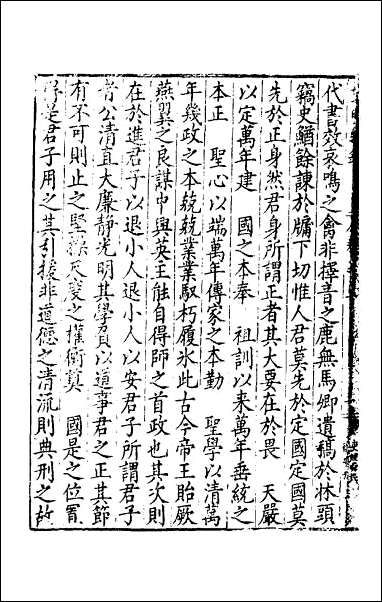 代書效哀鳴之禽非擇音之鹿無馬卿遺稿於牀頭
竊史鰌餘諫於牖下切惟人君莫先於定國定國莫
先於正身然君身所謂正者其大要在於畏　天嚴
以定萬年建　國之本奉　祖訓以來萬年垂統之
本正　聖心以端萬年傳家之本勤　聖學以清萬
年幾政之本兢兢業業馭朽履氷此古今帝王貽厥
燕翼之良謀中興英王能自得師之首政也其次則
在於進君子以退小人退小人以安君子所謂君子
者公清直大廉靜光明其學負以道事君之正其節
有不可則止之堅操天慶之權衡奠　國是之位置
是君子用之其引接非道德之清流則典刑之故